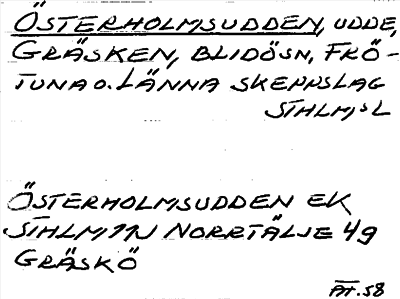 ÖSTERHOLMSUDDEN, UDDE,
GRÄSKEN, BLIDÖSN, FRÖ-
TUNA O. LÄNNA SKEPPSLAG
STHLMS L
ÖSTERHOLMSUDDEN EK
STHLM 11N NORRTÄLJE 49
GRÄSKÖ
AT. 58